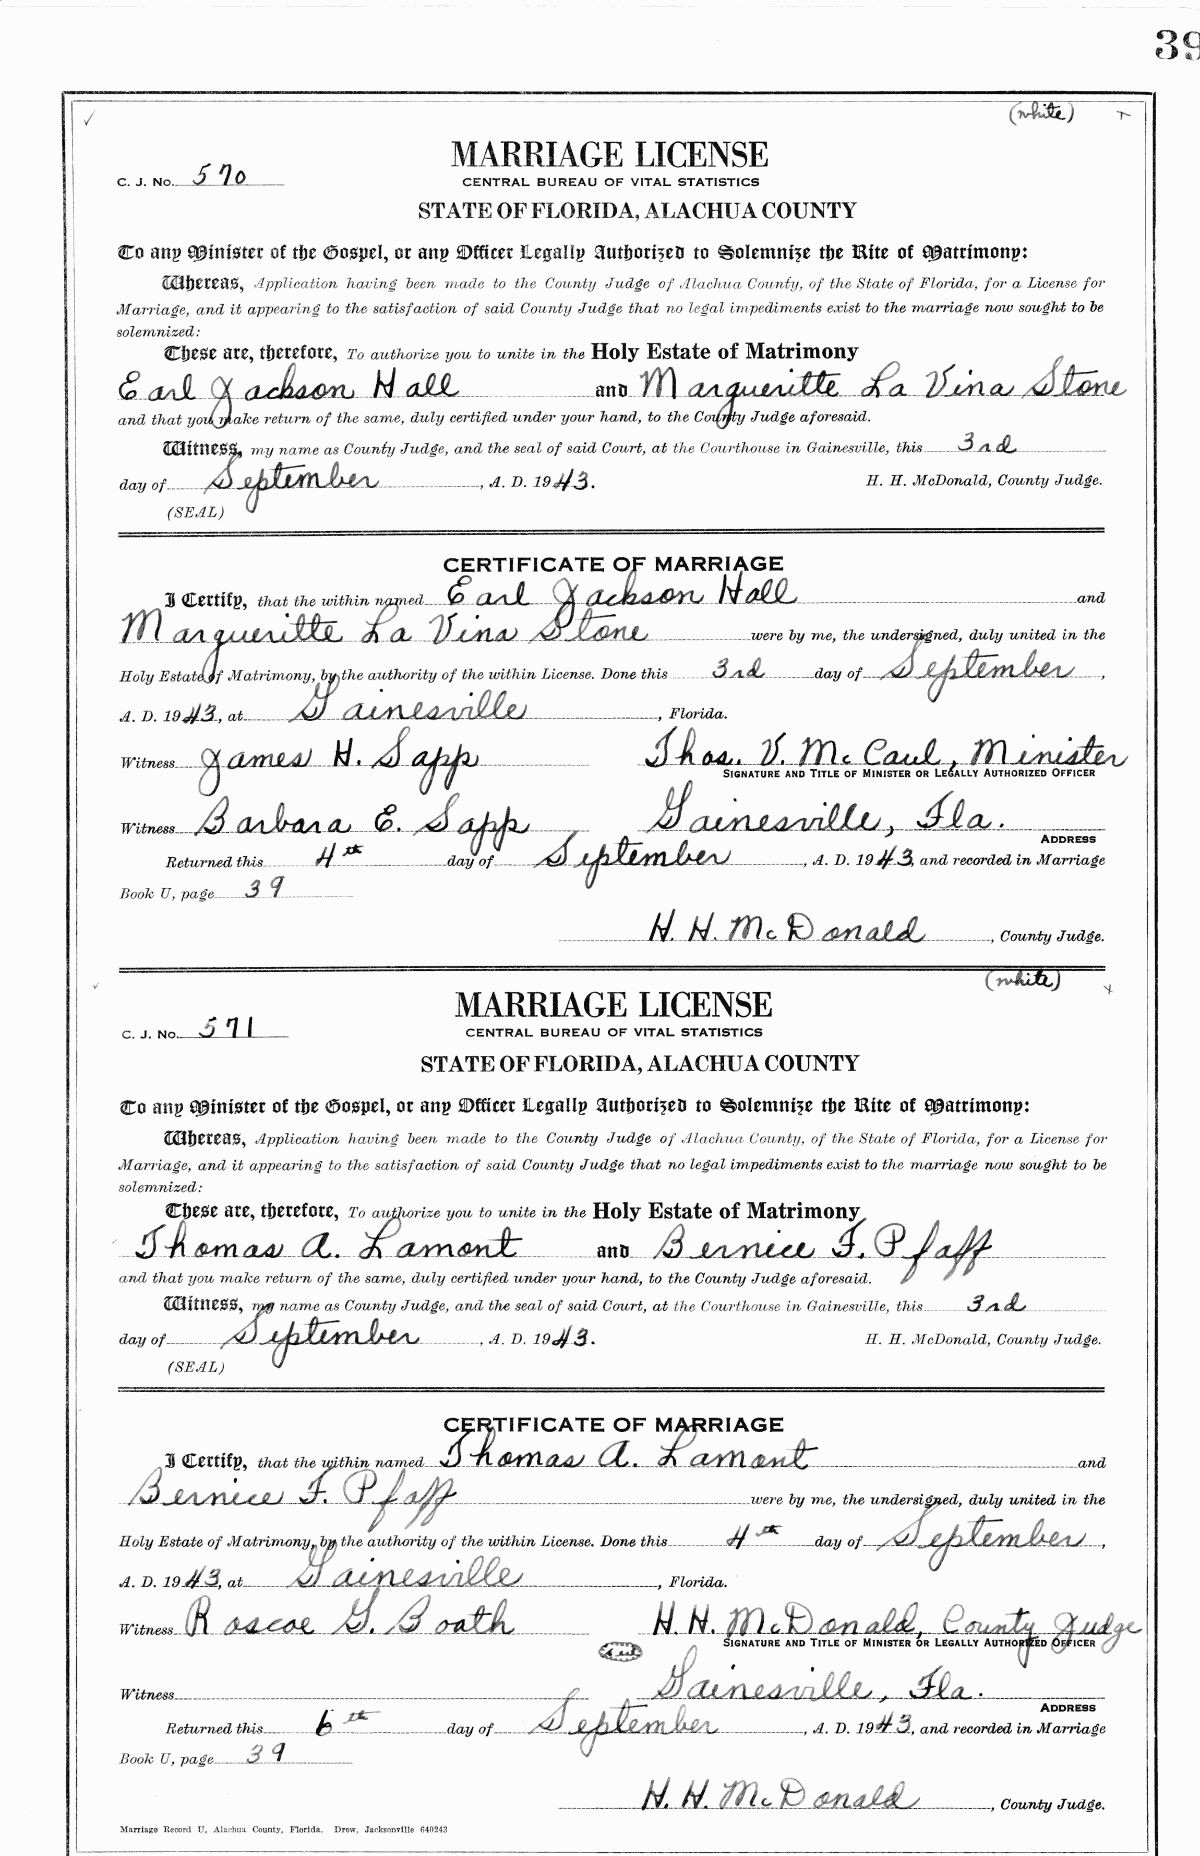 39
(white)
MARRIAGE LICENSE
C. J. No. 570
CENTRAL BUREAU OF VITAL STATISTICS
STATE OF FLORIDA, ALACHUA COUNTY
To any Minister of the Gospel, or any Officer Legally Authorized to Solemnize the Rite of Matrimony:
Whereas, Application having been made to the County Judge of Alachua County, of the State of Florida, for a License for
Marriage, and it appearing to the satisfaction of said County Judge that no legal impediments exist to the marriage now sought to be
solemnized:
These are, therefore, To authorize you to unite in the Holy Estate of Matrimony
Earl Jackson Hall and Margueritte La Vina Stone
and that you make return of the same, duly certified under your hand, to the County Judge aforesaid.
Witness, my name as County Judge, and the seal of said Court, at the Courthouse in Gainesville, this 3rd
day of September, A. D. 1943. H. H. McDonald, County Judge.
(SEAL)
CERTIFICATE OF MARRIAGE
I Certify, that the within named Earl Jackson Hall and
Margueritte La Vina Stone were by me, the undersigned, duly united in the
Holy Estate of Matrimony, by the authority of the within License. Done this 3rd day of September,
A. D. 1943, at Gainesville, Florida.
Witness James H. Sapp Thos. V. McCaul, Minister
SIGNATURE AND TITLE OF MINISTER OR LEGALLY AUTHORIZED OFFICER
Witness Barbara E. Sapp Gainesville, Fla.
ADDRESS
Returned this 4th day of September, A. D. 1943, and recorded in Marriage
Book U, page 39
H. H. McDonald, County Judge.
(white)
MARRIAGE LICENSE
C. J. No. 571
CENTRAL BUREAU OF VITAL STATISTICS
STATE OF FLORIDA, ALACHUA COUNTY
To any Minister of the Gospel, or any Officer Legally Authorized to Solemnize the Rite of Matrimony:
Whereas, Application having been made to the County Judge of Alachua County, of the State of Florida, for a License for
Marriage, and it appearing to the satisfaction of said County Judge that no legal impediments exist to the marriage now sought to be
solemnized:
These are, therefore, To authorize you to unite in the Holy Estate of Matrimony
Thomas A. Lamont and Bernice F. Pfaff
and that you make return of the same, duly certified under your hand, to the County Judge aforesaid.
Witness, my name as County Judge, and the seal of said Court, at the Courthouse in Gainesville, this 3rd
day of September, A. D. 1943. H. H. McDonald, County Judge.
(SEAL)
CERTIFICATE OF MARRIAGE
I Certify, that the within named Thomas A. Lamont and
Bernice F. Pfaff were by me, the undersigned, duly united in the
Holy Estate of Matrimony, by the authority of the within License. Done this 4th day of September,
A. D. 1943, at Gainesville, Florida.
Witness Roscoe G. Booth H. H. McDonald, County Judge
SIGNATURE AND TITLE OF MINISTER OR LEGALLY AUTHORIZED OFFICER
Seal
Witness Gainesville, Fla.
ADDRESS
Returned this 6th day of September, A. D. 1943, and recorded in Marriage
Book U, page 39
H. H. McDonald, County Judge.
Marriage Record U, Alachua County, Florida. Drew, Jacksonville 640243